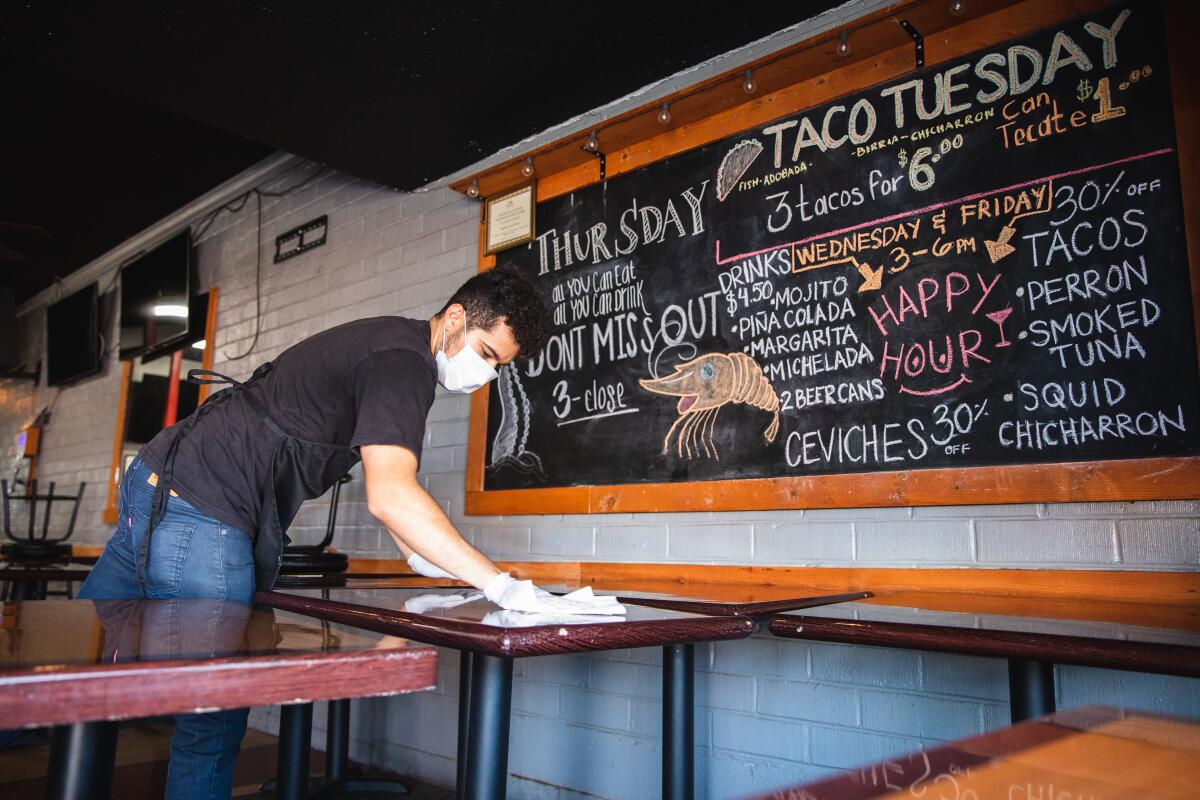 TACO TUESDAY
FISH-ADOBADA-
-BIRRIA-CHICHARRON
Can
Tecate $1.00
3 tacos for $6.00
THURSDAY
all YOU Can Eat
all YOU Can DRINK
DONT MISS OUT
3-close
WEDNESDAY & FRIDAY
3-6PM
HAPPY
HOUR
DRINKS
$4.50
•MOJITO
•PIÑA COLADA
•MARGARITA
•MICHELADA
•2 BEER CANS
CEVICHES 30%
OFF
30% OFF
TACOS
•PERRON
•SMOKED
TUNA
•SQUID
CHICHARRON